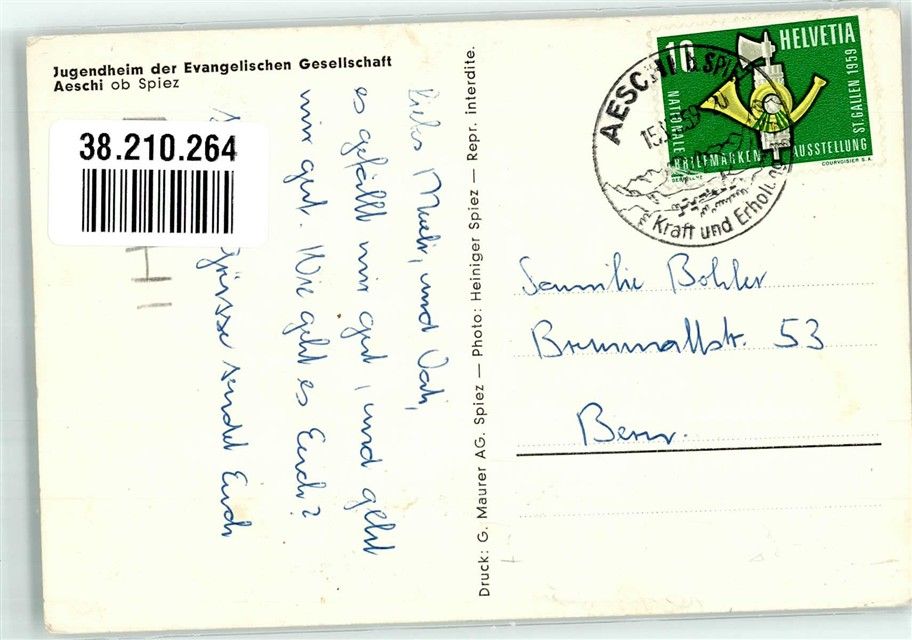 Jugendheim der Evangelischen Gesellschaft
Aeschi ob Spiez
38.210.264
Liebs Mueti, und Vati,
es gefällt mir gut, und geht
mir gut. Wie geht es Euch?
Grüsse sendet Euch
Druck: G. Maurer AG. Spiez — Photo: Heiniger Spiez — Repr. interdite.
10
HELVETIA
NATIONALE
BRIEFMARKEN
AUSSTELLUNG
ST. GALLEN 1959
COURVOISIER S.A.
AESCHI b. SPIEZ
Kraft und Erholung
Familie Bohler
53
Bern.